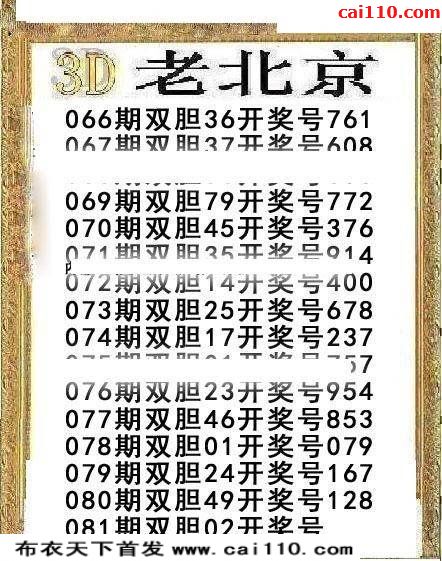 cai110.com
3D 老北京
066期双胆36开奖号761
067期双胆37开奖号608
069期双胆79开奖号772
070期双胆45开奖号376
071期双胆35开奖号914
072期双胆14开奖号400
073期双胆25开奖号678
074期双胆17开奖号237
076期双胆23开奖号954
077期双胆46开奖号853
078期双胆01开奖号079
079期双胆24开奖号167
080期双胆49开奖号128
081期双胆02开奖号
布衣天下首发 www.cai110.com